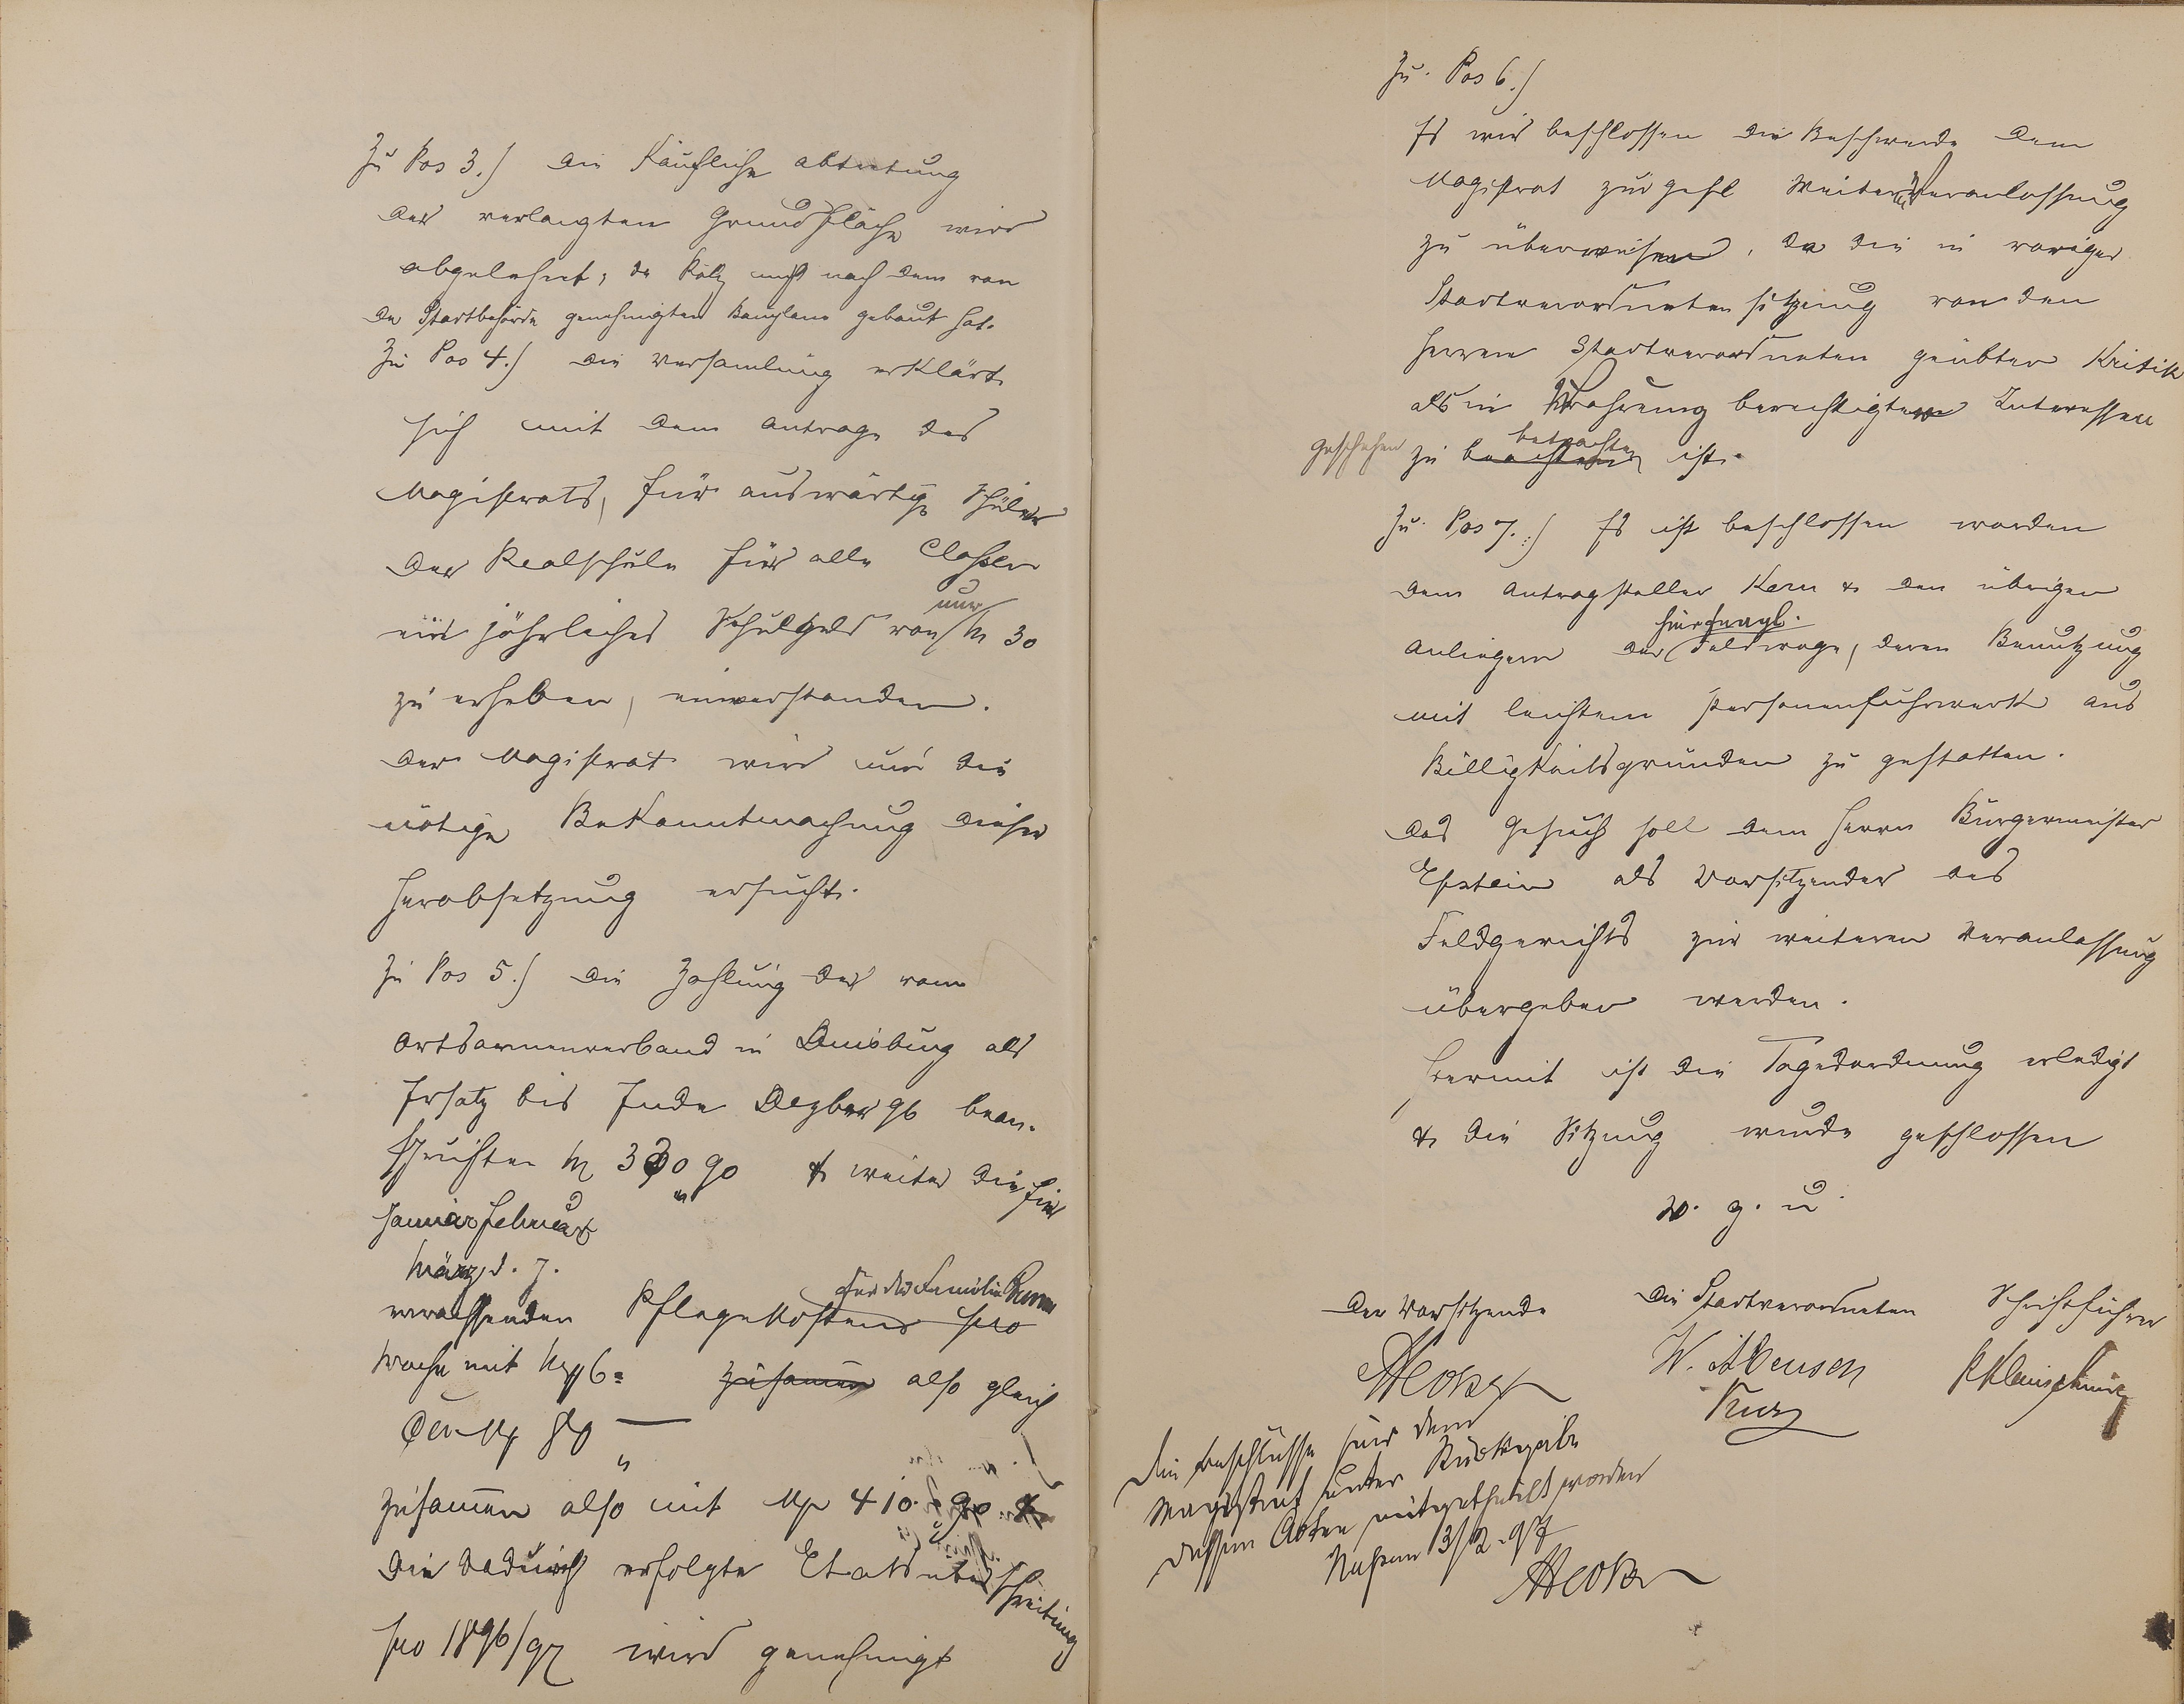 Zu Pos 3.) Die Käufliche abtretung
der verlangten Grundfläche wird
abgelehnt; da Kolz nicht nach dem von
der Stadtbehörde genehmigten Bauplane gebaut hat.
Zu Pos 4.) Die Versamlung erklärt
sich mit dem Antrage des
Magistrats, für auswärtige Schüler
der Realschule für alle Classen
ein jährliches Schulgeld von nur M 30
zu erheben, einverstanden.
Der Magistrat wird um die
nötige Bekanntmachung dieser
Herabsetzung ersucht.
Zu Pos 5.) Die Zahlung der vom
Ortsarmenverband in Duisburg als
Ersatz bis Ende Dezber 96 bean-
spruchten M 330 90 & weiter die für
Januar Februar
März d. J.
erwachsenden Pflegekosten für die Familie pro
Woche mit M 6 = zusamen also gleich
den M 80 —
zusamen also mit M 410. 90 &
die dadurch erfolgte Etatsüberschreitung
pro 1896/97 wird genehmigt
Zu Pos 6.)
Es wird beschlossen die Beschwerde dem
Magistrat zur gefl Weiterveranlassung
zu überweisen, da die in voriger
Stadtverordnetensitzung von den
Herren Stadtverordneten geübter Kritik
als in Wahrung berechtigter Interessen
geschehen zu beachten betrachten ist.
Zu Pos 7.:) Es ist beschlossen worden
dem Antragsteller Kern & den übrigen
Anliegern der hierfragl. Feldwege, deren Benutzung
mit leichtem Personenfuhrwerk aus
Billigkeitsgründen zu gestatten.
Das Gesuch soll dem Herrn Bürgermeister
Epstein als Vorsitzender des
Feldgerichts zur weiteren Veranlassung
übergeben werden.
Hiermit ist die Tagesordnung erledigt
& die Sitzung wurde geschlossen
v. g. u.
Der Vorsitzende Die Stadtverordneten Schriftführer
W. Abenson
Kurz
Die Beschlüsse sind dem
Magistrat unter Rückgabe
dessen Akten mitgetheilt worden
13/2. 97